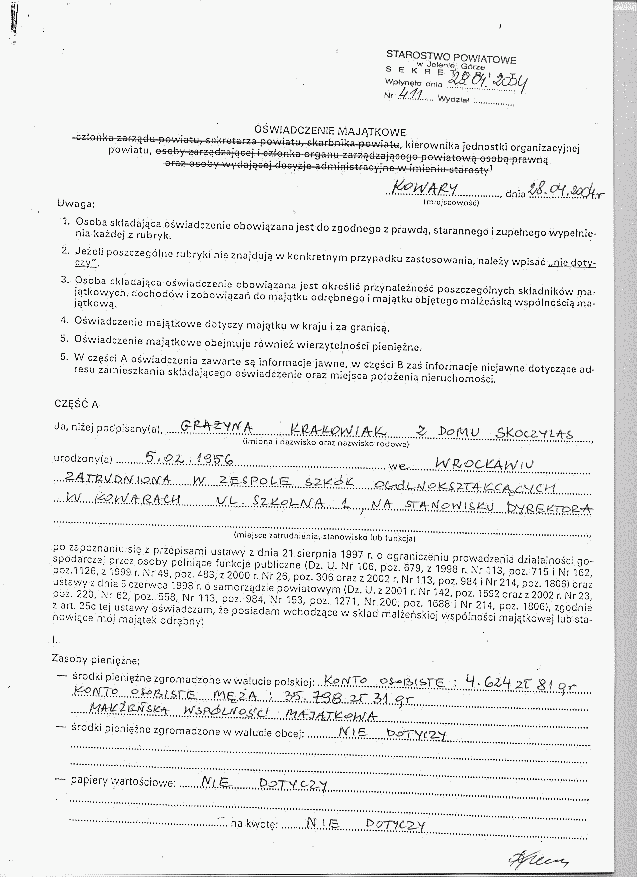 STAROSTWO POWIATOWE
w Jeleniej Górze
S E K R E
Wpłynęło dnia 28.04.2004
Nr 411 Wydział
OŚWIADCZENIE MAJĄTKOWE
członka zarządu powiatu, sekretarza powiatu, skarbnika powiatu, kierownika jednostki organizacyjnej
powiatu, osoby zarządzającej i członka organu zarządzającego powiatową osobą prawną
oraz osoby wydającej decyzje administracyjne w imieniu starosty¹
KOWARY, dnia 28.04.2004r
(miejscowość)
Uwaga:
1. Osoba składająca oświadczenie obowiązana jest do zgodnego z prawdą, starannego i zupełnego wypełnie-
nia każdej z rubryk.
2. Jeżeli poszczególne rubryki nie znajdują w konkretnym przypadku zastosowania, należy wpisać „nie doty-
czy".
3. Osoba składająca oświadczenie obowiązana jest określić przynależność poszczególnych składników ma-
jątkowych, dochodów i zobowiązań do majątku odrębnego i majątku objętego małżeńską wspólnością ma-
jątkową.
4. Oświadczenie majątkowe dotyczy majątku w kraju i za granicą.
5. Oświadczenie majątkowe obejmuje również wierzytelności pieniężne.
6. W części A oświadczenia zawarte są informacje jawne, w części B zaś informacje niejawne dotyczące ad-
resu zamieszkania składającego oświadczenie oraz miejsca położenia nieruchomości.
CZĘŚĆ A
Ja, niżej podpisany(a), GRAŻYNA KRAKOWIAK Z DOMU SKOCZYLAS
(imiona i nazwisko oraz nazwisko rodowe)
urodzony(a) 5.02.1956 we WROCŁAWIU
ZATRUDNIONA W ZESPOLE SZKÓŁ OGÓLNOKSZTAŁCĄCYCH
W KOWARACH UL. SZKOLNA 1, NA STANOWISKU DYREKTORA
(miejsce zatrudnienia, stanowisko lub funkcja)
po zapoznaniu się z przepisami ustawy z dnia 21 sierpnia 1997 r. o ograniczeniu prowadzenia działalności go-
spodarczej przez osoby pełniące funkcje publiczne (Dz. U. Nr 106, poz. 679, z 1998 r. Nr 113, poz. 715 i Nr 162,
poz.1126, z 1999 r. Nr 49, poz. 483, z 2000 r. Nr 26, poz. 306 oraz z 2002 r. Nr 113, poz. 984 i Nr 214, poz. 1806) oraz
ustawy z dnia 5 czerwca 1998 r. o samorządzie powiatowym (Dz. U. z 2001 r. Nr 142, poz. 1592 oraz z 2002 r. Nr 23,
poz. 220, Nr 62, poz. 558, Nr 113, poz. 984, Nr 153, poz. 1271, Nr 200, poz. 1688 i Nr 214, poz. 1806), zgodnie
z art. 25c tej ustawy oświadczam, że posiadam wchodzące w skład małżeńskiej wspólności majątkowej lub sta-
nowiące mój majątek odrębny:
I.
Zasoby pieniężne:
— środki pieniężne zgromadzone w walucie polskiej: KONTO OSOBISTE : 4.624 zł 81 gr
KONTO OSOBISTE MĘŻA : 35.798 zł 31 gr
MAŁŻEŃSKA WSPÓLNOŚCI MAJĄTKOWA
— środki pieniężne zgromadzone w walucie obcej: NIE DOTYCZY
— papiery wartościowe: NIE DOTYCZY
na kwotę: NIE DOTYCZY